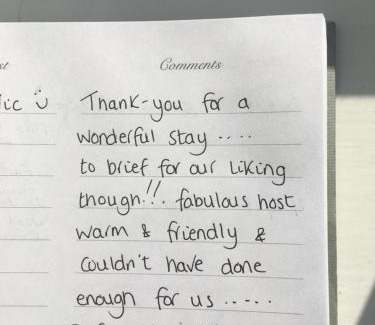 st Comments
ic تـ Thank-you for a
wonderful stay ....
to brief for our liking
though!!! fabulous host
warm & friendly &
couldn't have done
enough for us .....